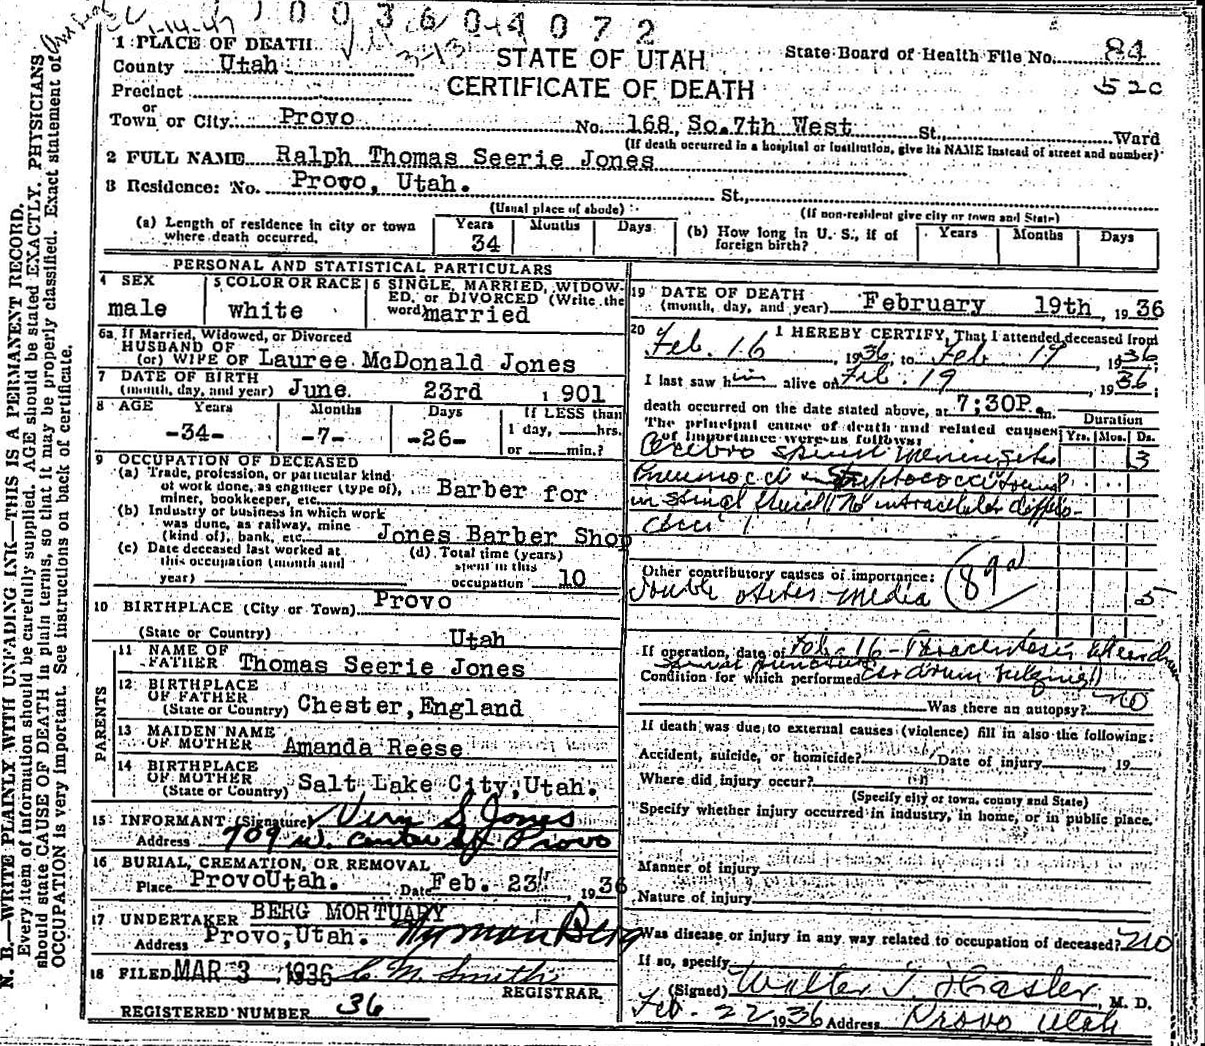 1003604072
1 PLACE OF DEATH
STATE OF UTAH
State Board of Health File No. 84
County Utah
CERTIFICATE OF DEATH
52c
Precinct
or
Town or City Provo No. 168, So. 7th West St., Ward
(If death occurred in a hospital or institution, give its NAME instead of street and number)
2 FULL NAME Ralph Thomas Seerie Jones
3 Residence: No. Provo, Utah. St.,
(Usual place of abode) (If non-resident give city or town and State)
(a) Length of residence in city or town where death occurred. Years 34 Months Days (b) How long in U. S., if of foreign birth? Years Months Days
PERSONAL AND STATISTICAL PARTICULARS
4 SEX male
5 COLOR OR RACE white
6 SINGLE, MARRIED, WIDOWED, or DIVORCED (Write the word) married
6a. If Married, Widowed, or Divorced
HUSBAND OF
(or) WIFE OF Lauree McDonald Jones
7 DATE OF BIRTH
(month, day, and year) June 23rd 1901
8 AGE Years Months Days If LESS than
-34- -7- -26- 1 day, hrs.
or min.?
9 OCCUPATION OF DECEASED
(a) Trade, profession, or particular kind
of work done, as engineer (type of),
miner, bookkeeper, etc. Barber for
(b) Industry or business in which work
was done, as railway, mine
(kind of), bank, etc. Jones Barber Shop
(c) Date deceased last worked at
this occupation (month and
year)
(d) Total time (years)
spent in this
occupation 10
10 BIRTHPLACE (City or Town) Provo
(State or Country) Utah
PARENTS
11 NAME OF
FATHER Thomas Seerie Jones
12 BIRTHPLACE
OF FATHER
(State or Country) Chester, England
13 MAIDEN NAME
OF MOTHER Amanda Reese
14 BIRTHPLACE
OF MOTHER
(State or Country) Salt Lake City, Utah.
15 INFORMANT (Signature) Vern S Jones
Address 709 W. Center St Provo
16 BURIAL, CREMATION, OR REMOVAL
Place Provo Utah. Date Feb. 23, 1936
17 UNDERTAKER BERG MORTUARY
Address Provo, Utah. Wyman Berg
18 FILED MAR 3 1936 C M Smith
REGISTRAR.
REGISTERED NUMBER 36
19 DATE OF DEATH
(month, day, and year) February 19th, 1936
20 I HEREBY CERTIFY, That I attended deceased from
Feb. 16, 1936 to Feb 19, 1936
I last saw him alive on Feb. 19, 1936;
death occurred on the date stated above, at 7:30P. m.
The principal cause of death and related causes
of importance were as follows:
Duration
Yrs. Mos. Ds.
Cerebro spinal meningitis 3
Pneumococci Streptococci found
in spinal fluid No intracellular diplo-
cocci
Other contributory causes of importance:
89a
Double otitis media 5
If operation, date of Feb. 16 - Paracentesis
spinal puncture
Condition for which performed (ear drum bulging)
Was there an autopsy? no
If death was due to external causes (violence) fill in also the following:
Accident, suicide, or homicide? Date of injury 19
Where did injury occur?
(Specify city or town, county and State)
Specify whether injury occurred in industry, in home, or in public place.
Manner of injury
Nature of injury
Was disease or injury in any way related to occupation of deceased? no
If so, specify
(Signed) Walter T. Hasler, M. D.
Feb. 22 1936 Address Provo Utah
N. B.—WRITE PLAINLY WITH UNFADING INK—THIS IS A PERMANENT RECORD.
Every item of information should be carefully supplied. AGE should be stated EXACTLY. PHYSICIANS
should state CAUSE OF DEATH in plain terms, so that it may be properly classified. Exact statement of
OCCUPATION is very important. See instructions on back of certificate.